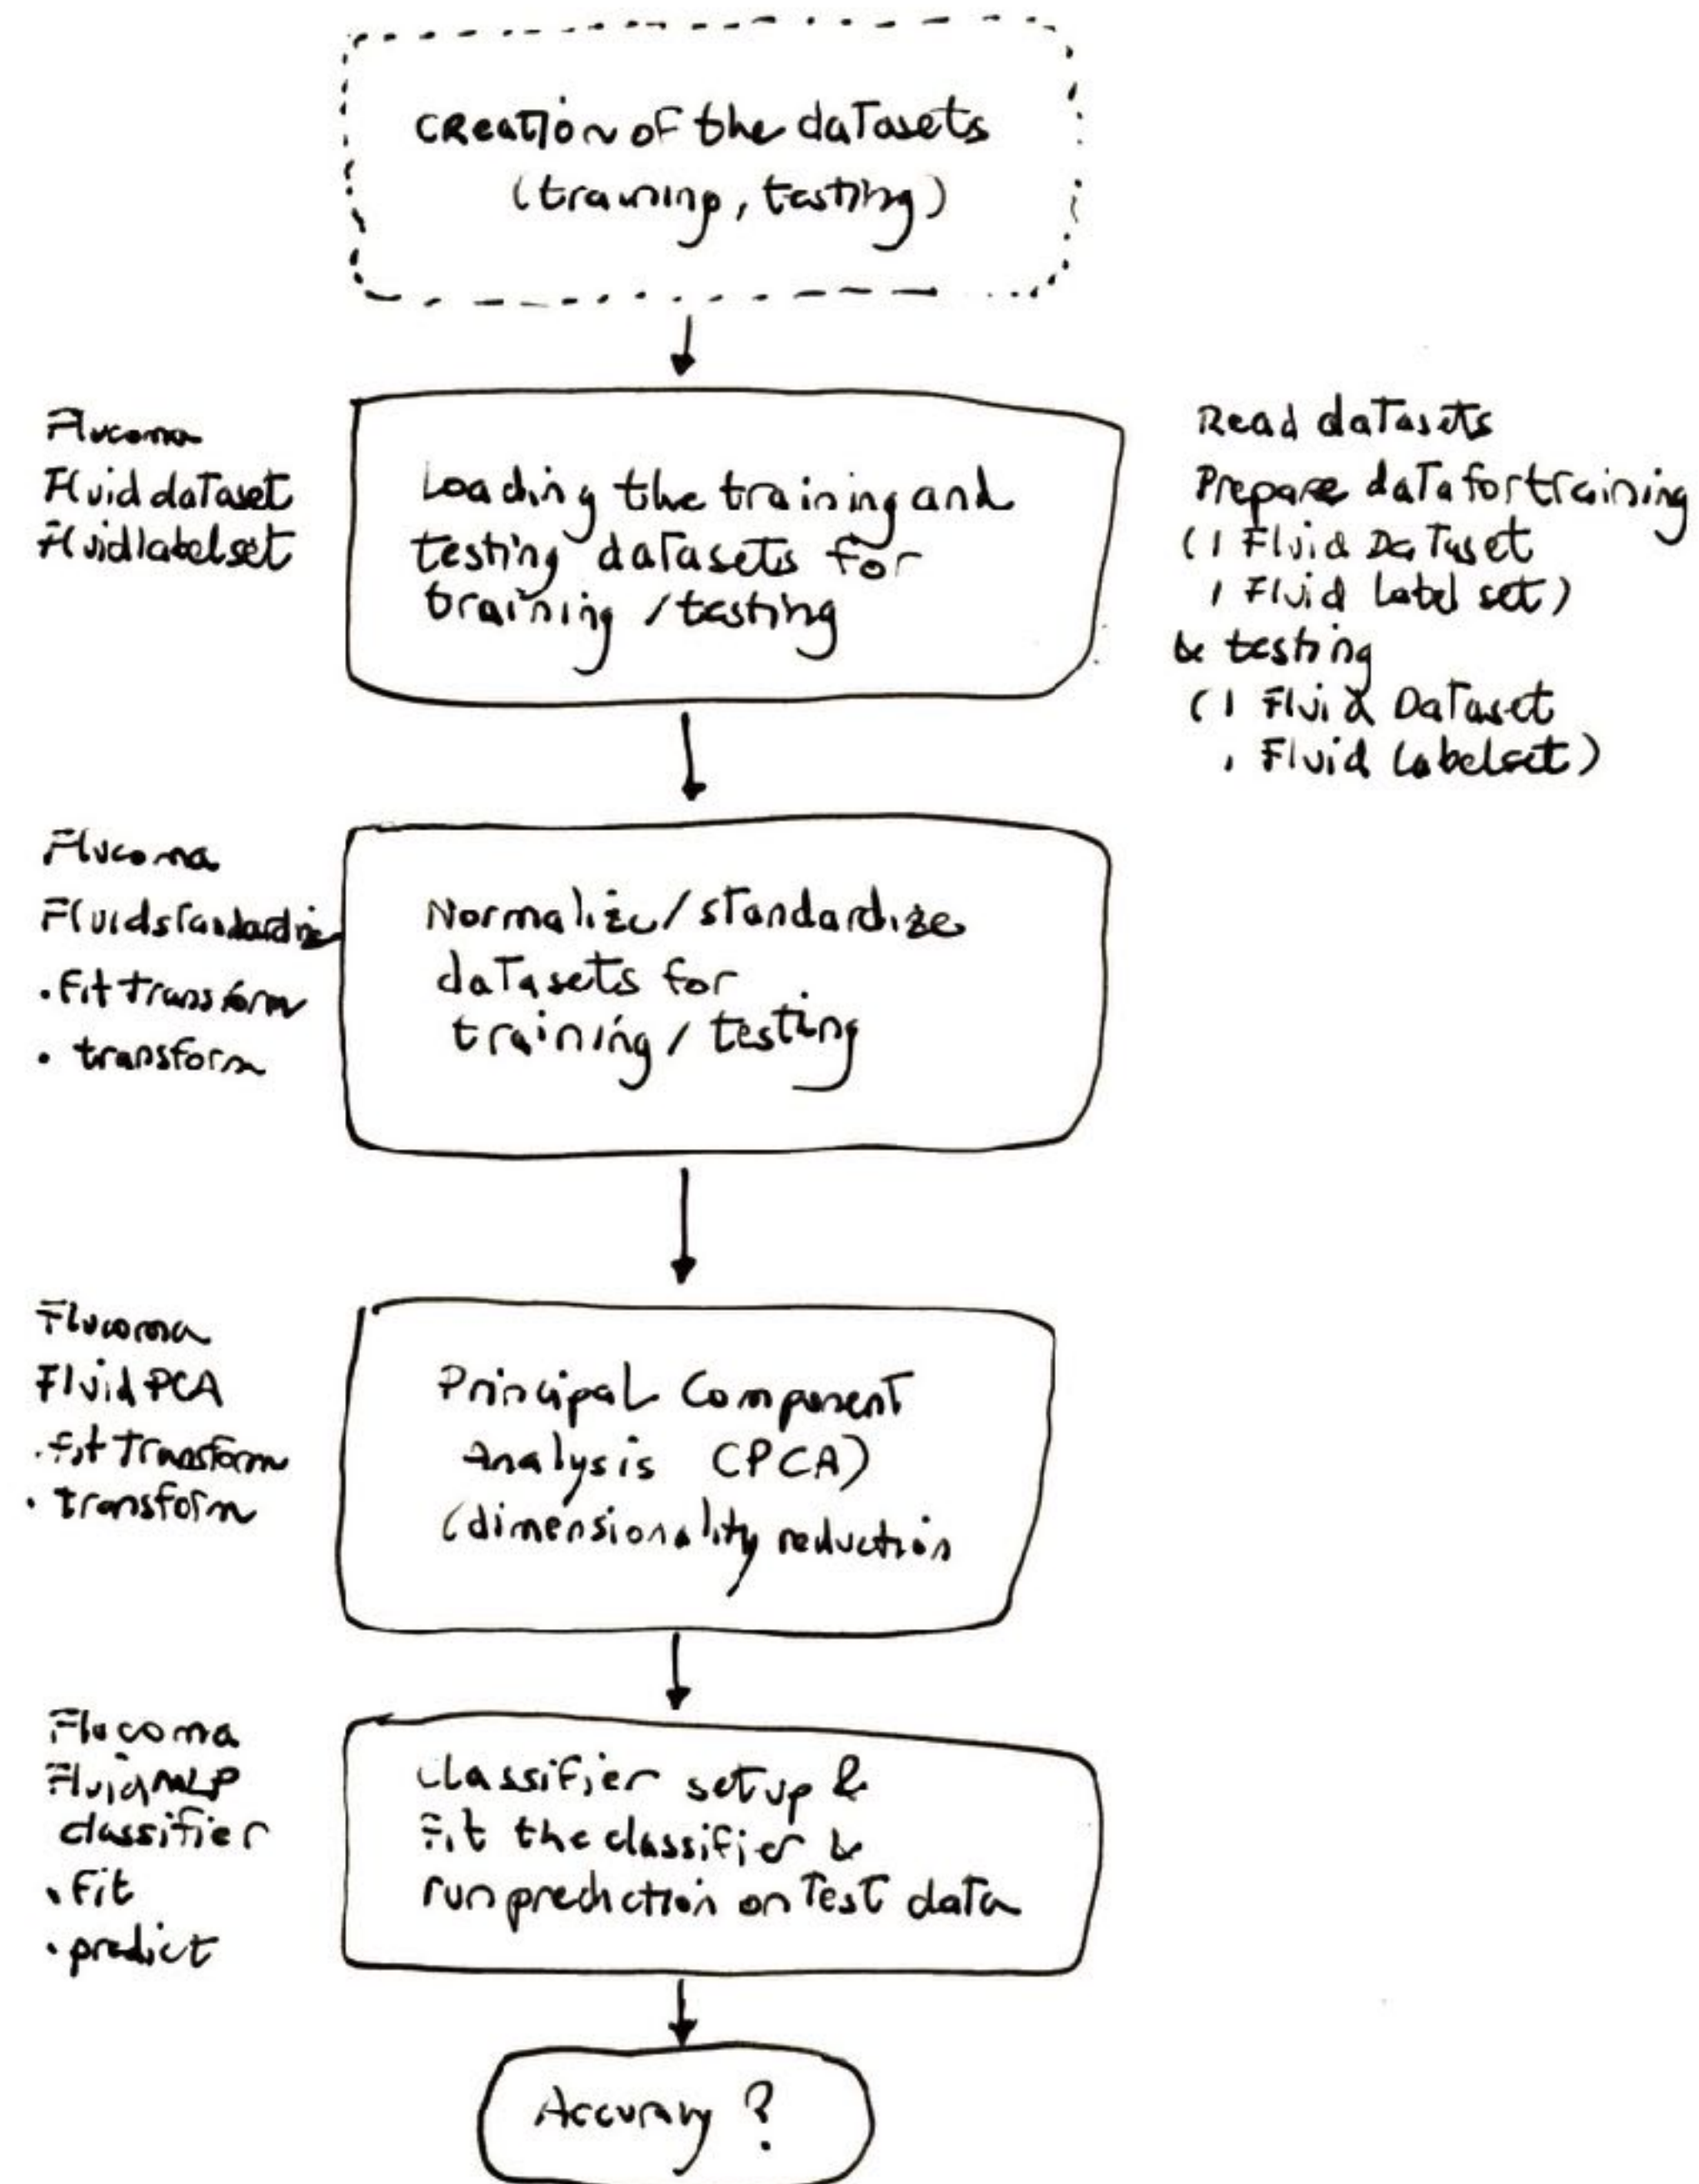 Creation of the datasets
(training, testing)
Flucoma
Fluid dataset
Fluidlabelset
Loading the training and
testing datasets for
training / testing
Read datasets
Prepare data for training
(1 Fluid Dataset
1 Fluid Label set)
& testing
(1 Fluid Dataset
1 Fluid Labelset)
Flucoma
Fluidstandardize
. Fit transform
. transform
Normalize / standardize
datasets for
training / testing
Flucoma
Fluid PCA
. fit Transform
. transform
Principal Component
Analysis (PCA)
(dimensionality reduction
Flucoma
FluidMLP
classifier
. Fit
. predict
Classifier setup &
Fit the classifier &
run prediction on Test data
Accuracy ?